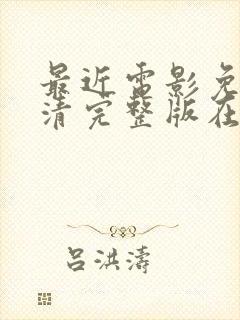 最近电影免
清完整版在
吕洪涛